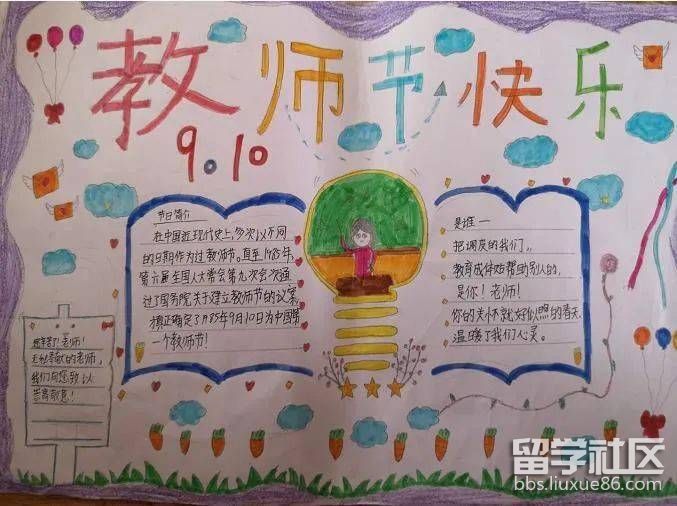 教师节快乐
9.10
节日简介
在中国近现代史上,多次以不同
的日期作为过教师节。直至1985年,
第六届全国人大常会第九次会次通
过了国务院关于建立教师节的议案,
真正确定了1985年9月10日为中国第
一个教师节!
是谁一
把调皮的我们,,
教育成体贴帮助别人的,
是你!老师!
你的关怀就好似照的春天
温暖了我们心灵。
老师!
无私奉献的老师,
我们向您致以
崇高敬意!
留学社区
bbs.liuxue86.com